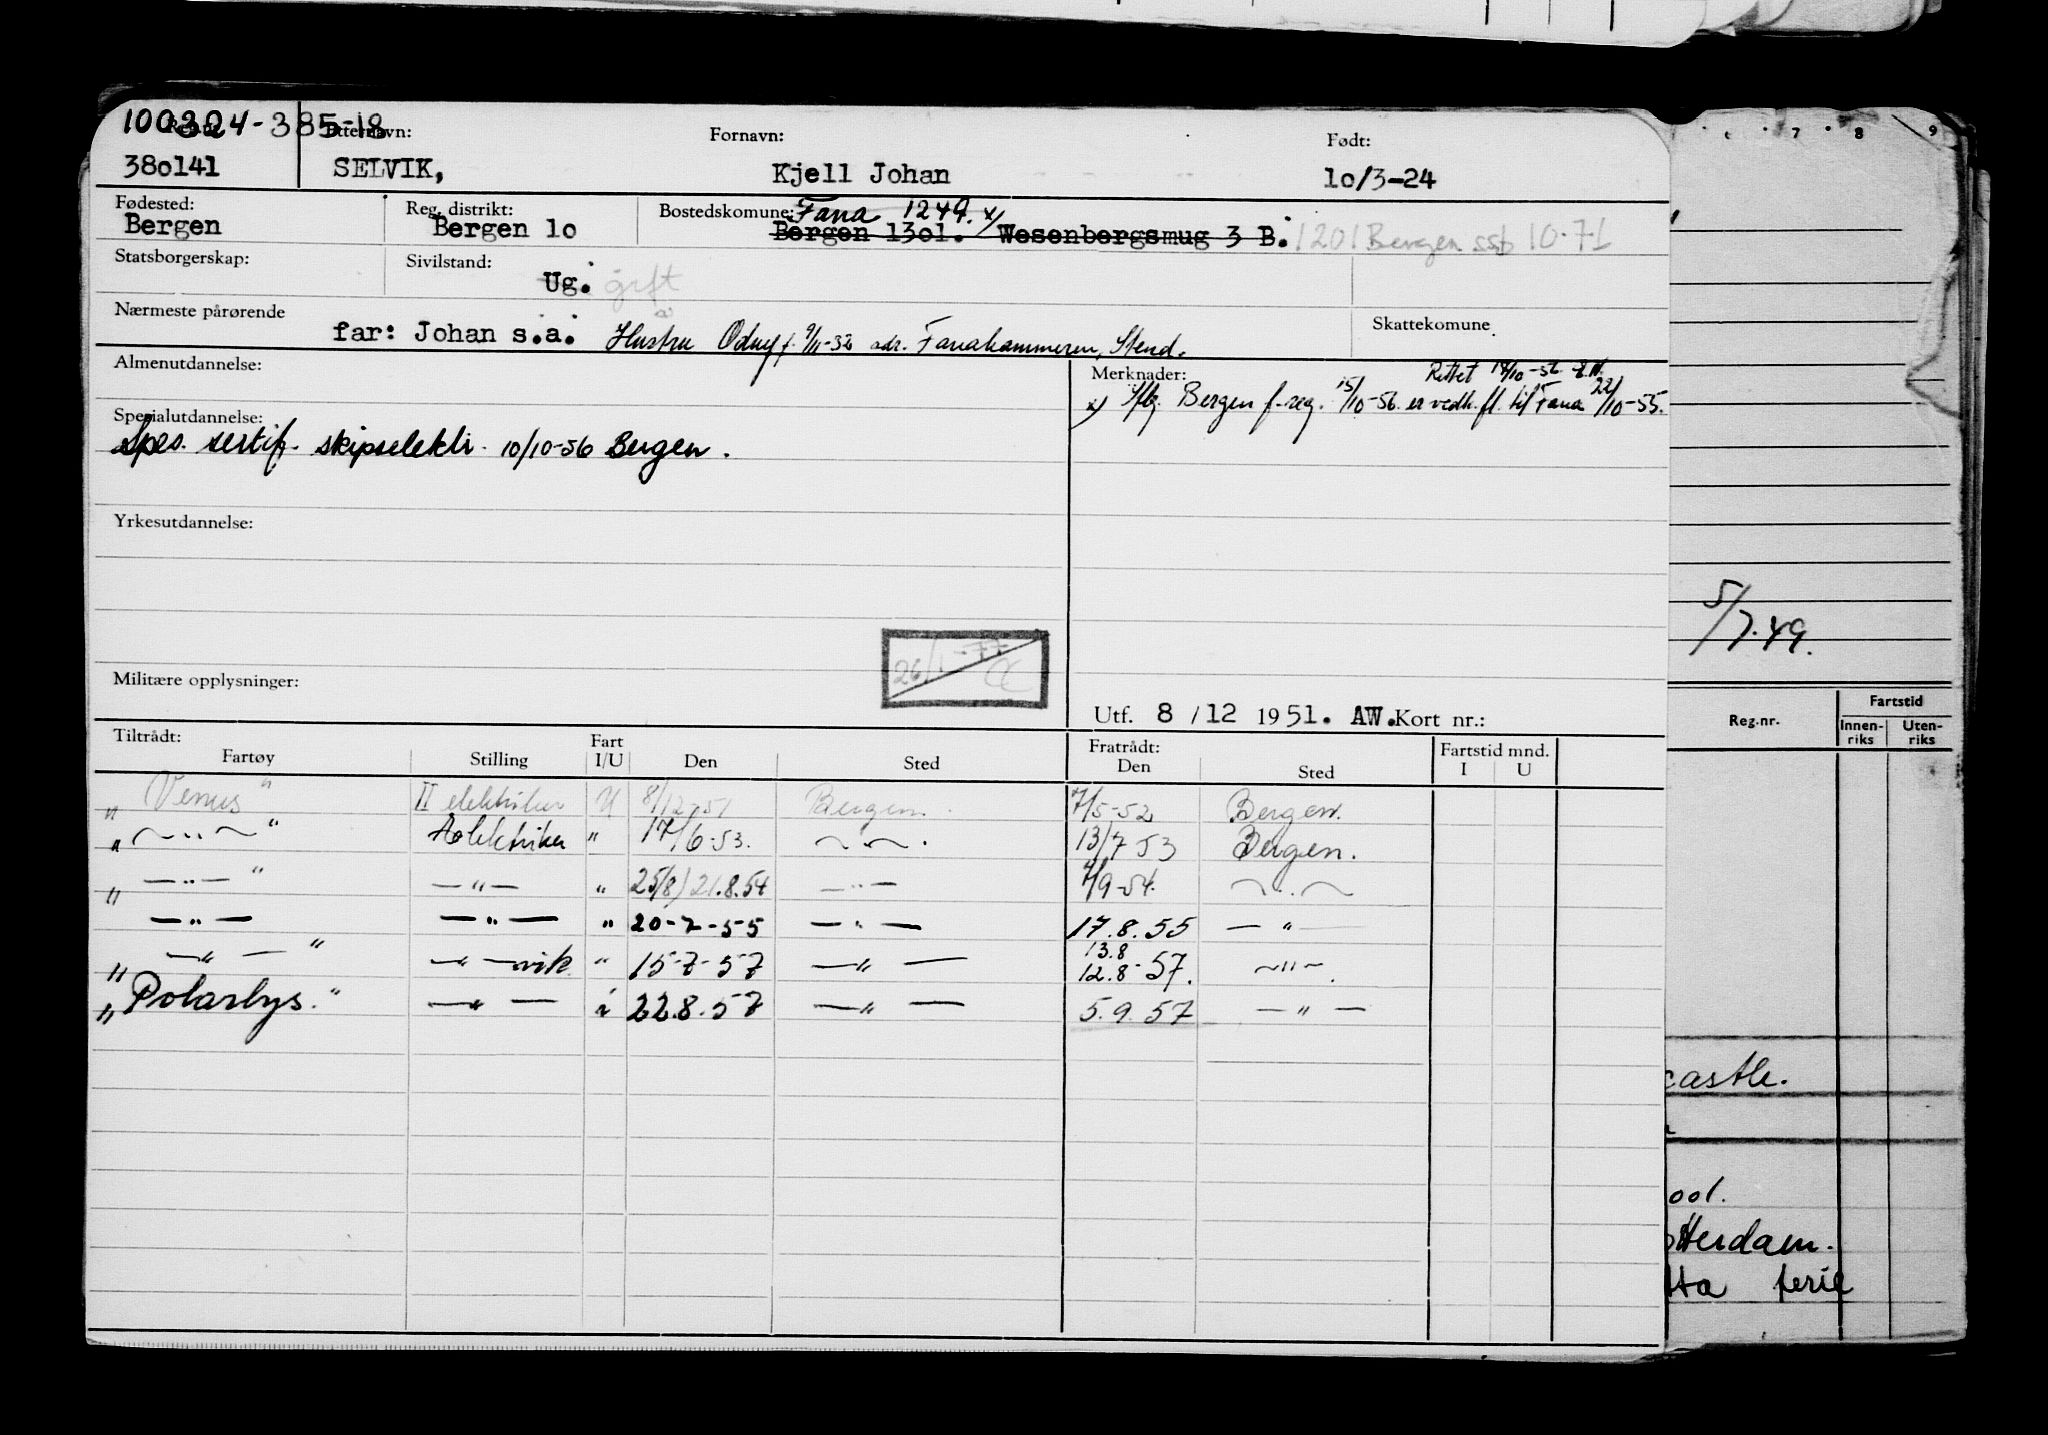 100324-385-18
Etternavn: Fornavn: Født:
380141 SELVIK, Kjell Johan 10/3-24
Fødested: Reg. distrikt: Bostedskommune: Fana 1249. x)
Bergen Bergen 10 Bergen 1301. Wesenbergsmug 3 B. 1201 Bergen ssb 10-71
Statsborgerskap: Sivilstand:
Ug. gift
Nærmeste pårørende Skattekomune
far: Johan s.a. Hustru Odny f. 9/11-32 adr. Fanahammeren, Stend.
Almenutdannelse: Merknader: Rettet 18/10-56
x) Bergen f.reg. 15/10-56 er vedk. fl. til Fana 22/10-55.
Spesialutdannelse:
Spes. sertif. skipselektr. 10/10-56 Bergen.
Yrkesutdannelse:
26/1-77
Militære opplysninger:
Utf. 8/12 1951. AW. Kort nr.:
Tiltrådt: Fart Fratrådt: Fartstid mnd.
Fartøy Stilling I/U Den Sted Den Sted I U
" Venus " II elektriker U 8/12-51 Bergen. 7/5-52 Bergen.
" —"— " A elektriker " 17/6-53. —"—. 13/7 53 Bergen.
" —"— " —"— " 25/8) 21.8.54 —"— 7/9-54. —"—
—"— —"— " 20-7-55 —"— 17.8.55 —"—
" —"— " —"— vik. " 15-7-57 —"— 13.8 12.8-57. —"—.
" Polarlys. " —"— i 22.8.57 —"— 5.9.57 —"—
7 8 9
5/7.49.
Reg.nr. Fartstid
Innen-riks Uten-riks
castle.
ool.
otterdam.
tta ferie